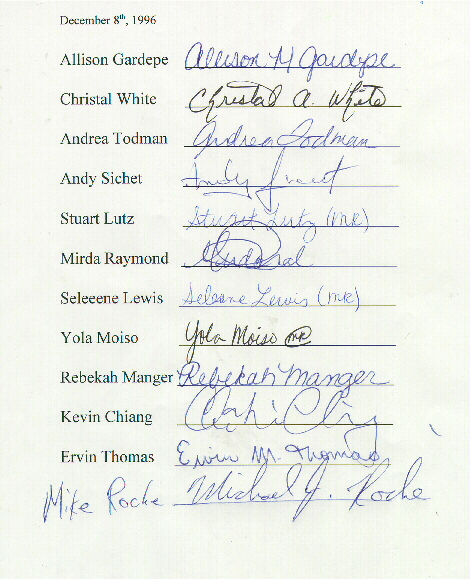 December 8th, 1996
Allison Gardepe Allison M Gardepe
Christal White Christal A. White
Andrea Todman Andrea Todman
Andy Sichet Andy
Stuart Lutz Stuart Lutz (MR)
Mirda Raymond
Seleeene Lewis Seleene Lewis (MR)
Yola Moiso Yola Moiso MR
Rebekah Manger Rebekah Manger
Kevin Chiang
Ervin Thomas Ervin M. Thomas
Mike Roche Michael J. Roche